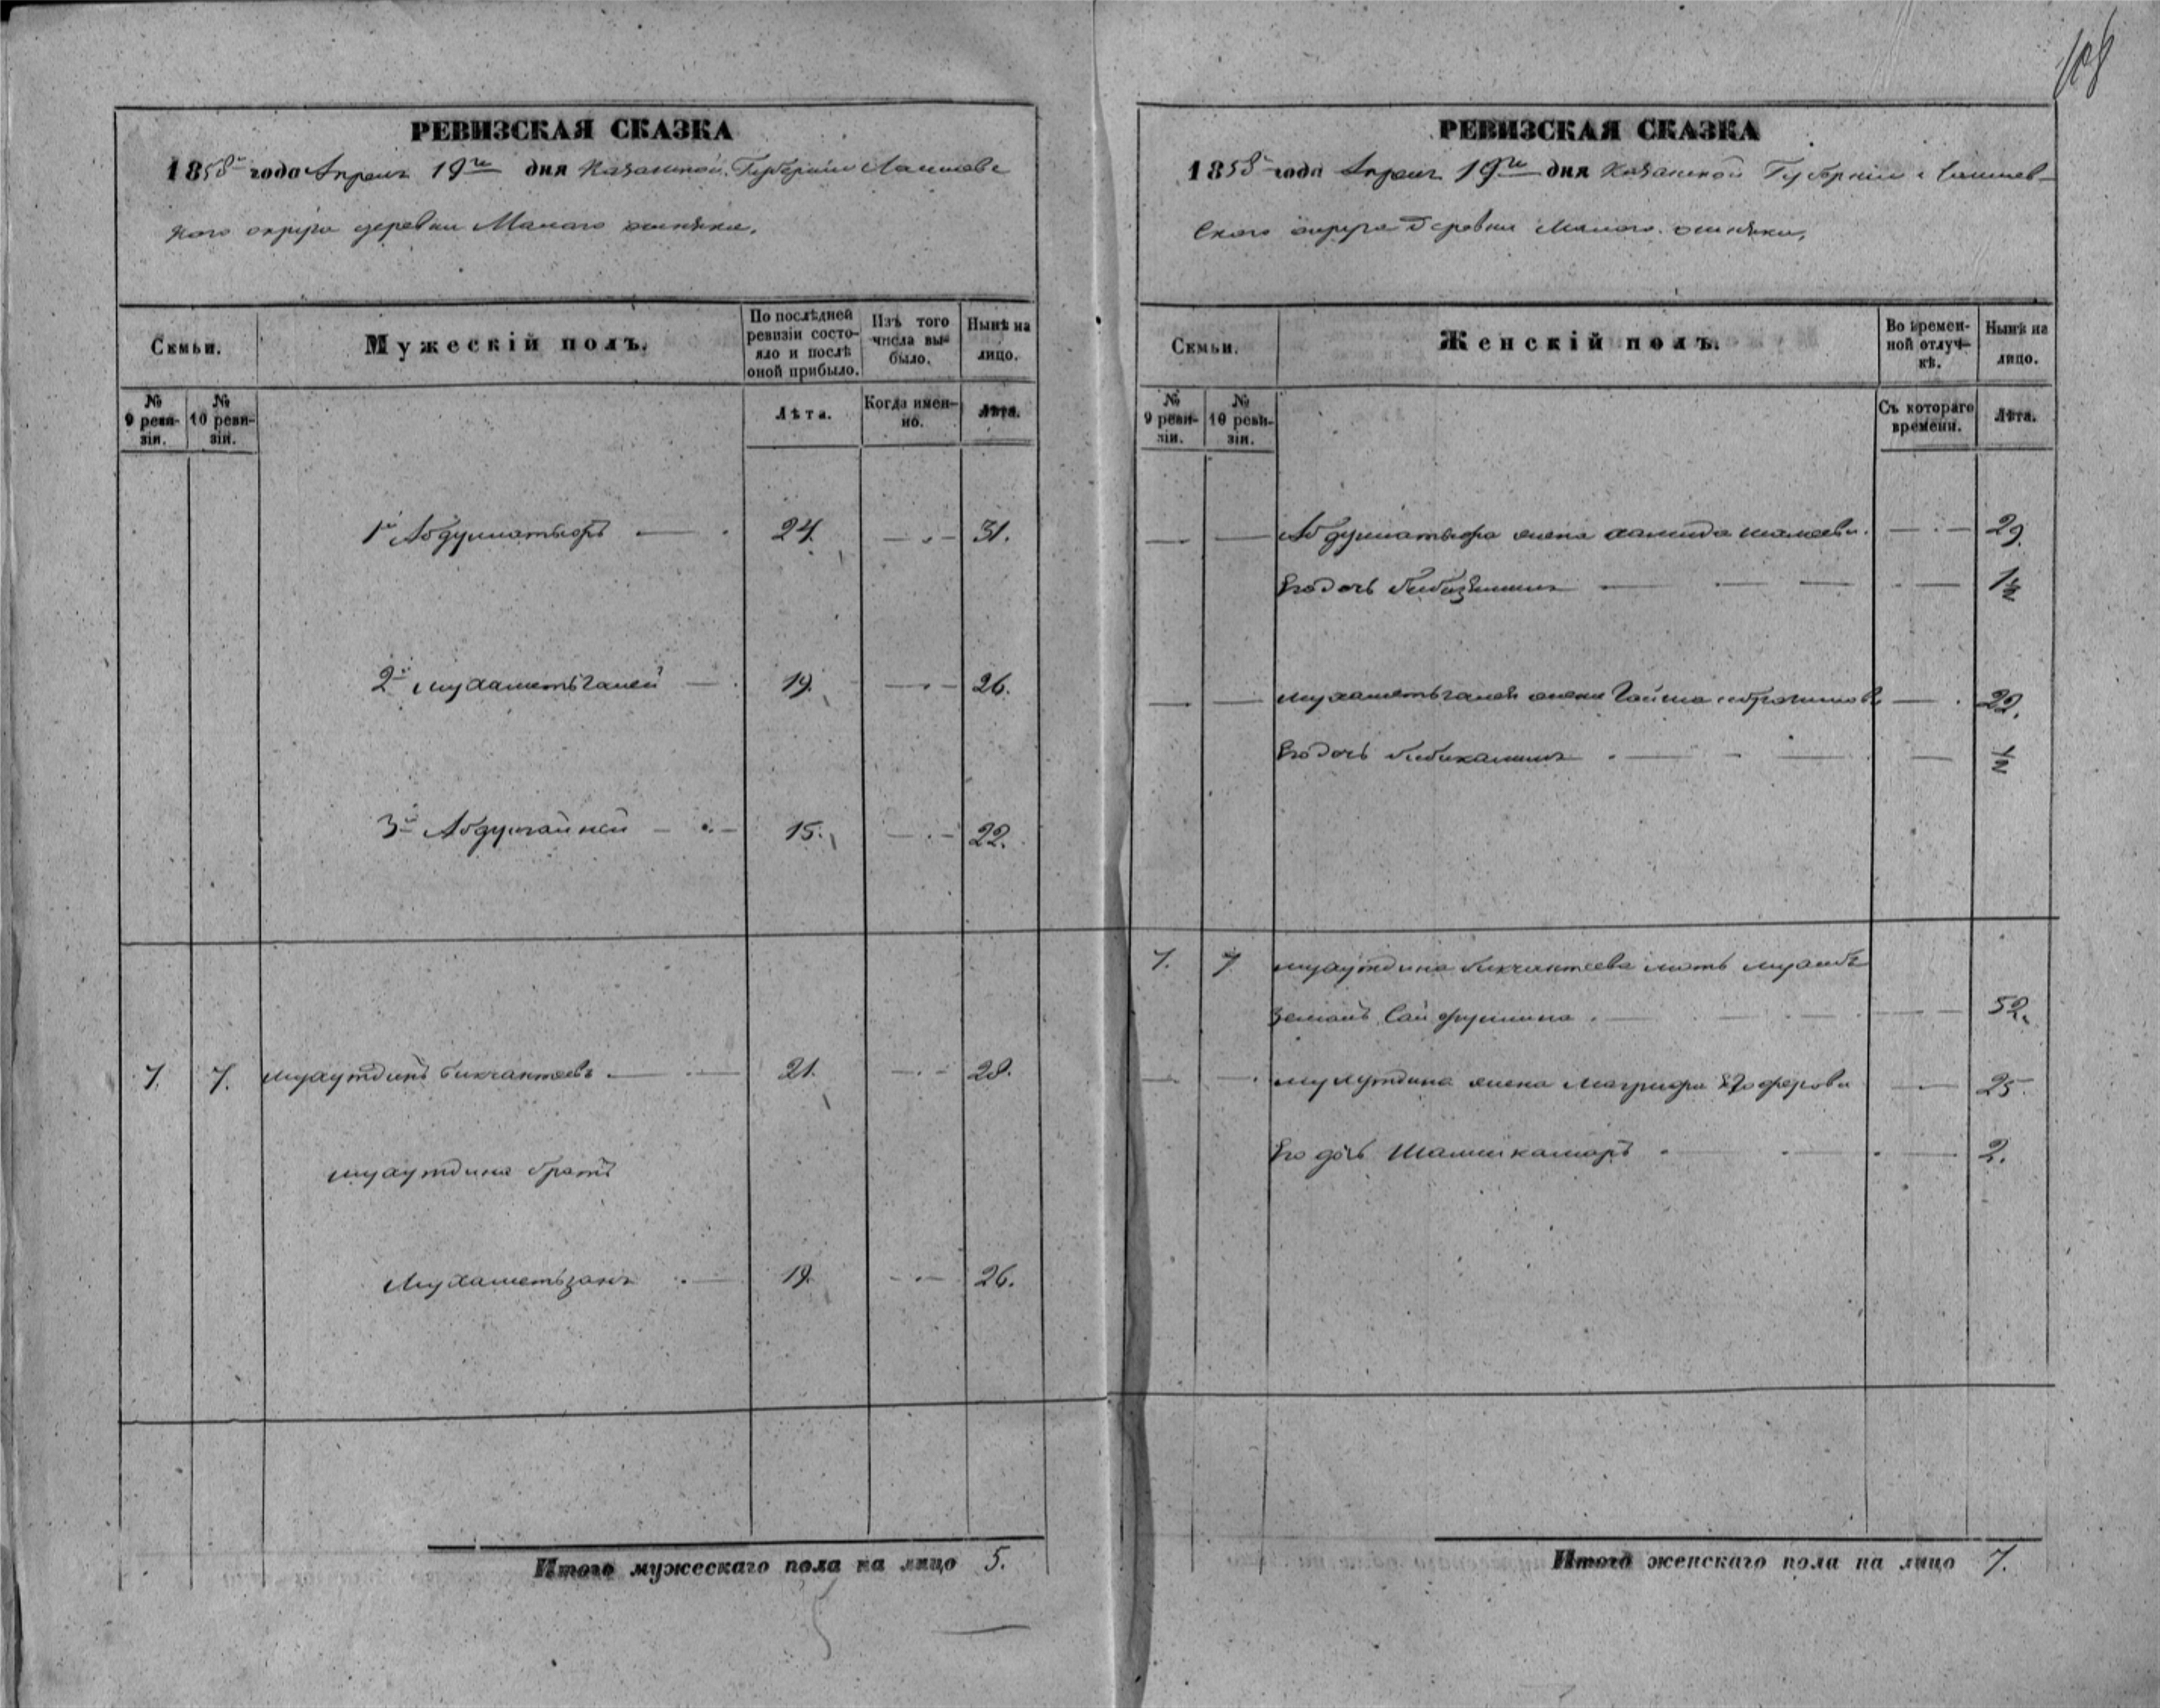 108
РЕВИЗСКАЯ СКАЗКА
1858 года Апреля 19го дня Казанской Губернии Лаишевс
кого округа деревни Малого
Семьи.
Мужескій полъ.
По послѣдней ревизіи состояло и послѣ оной прибыло.
Изъ того числа выбыло.
Нынѣ на лицо.
№ 9 ревизіи.
№ 10 ревизіи.
Лѣта.
Когда именно.
Лѣта.
1й 24. 31.
2й Мухаметьганей 19. 26.
3й 15. 22.
7. 7. Мухутдинъ Бикчантаевъ 21. 28.
Мухутдина братъ
Мухаметьзянъ 19. 26.
Итого мужескаго пола на лицо 5.
РЕВИЗСКАЯ СКАЗКА
1858 года Апреля 19го дня Казанской Губернии Лаишев-
ского округа Деревни Малого
Семьи.
Женскій полъ.
Во временной отлучкѣ.
Нынѣ на лицо.
№ 9 ревизіи.
№ 10 ревизіи.
Съ котораго времени.
Лѣта.
жена Хамида 29.
Его дочь 1½
Мухаметьганея жена 22.
Его дочь Бибикамиля ½
7. 7 Мухутдина Бикчантаева мать
Земанъ Сайфуллина 52.
Мухутдина жена 25
Его дочь Шамшикамаръ 2.
Итого женскаго пола на лицо 7.